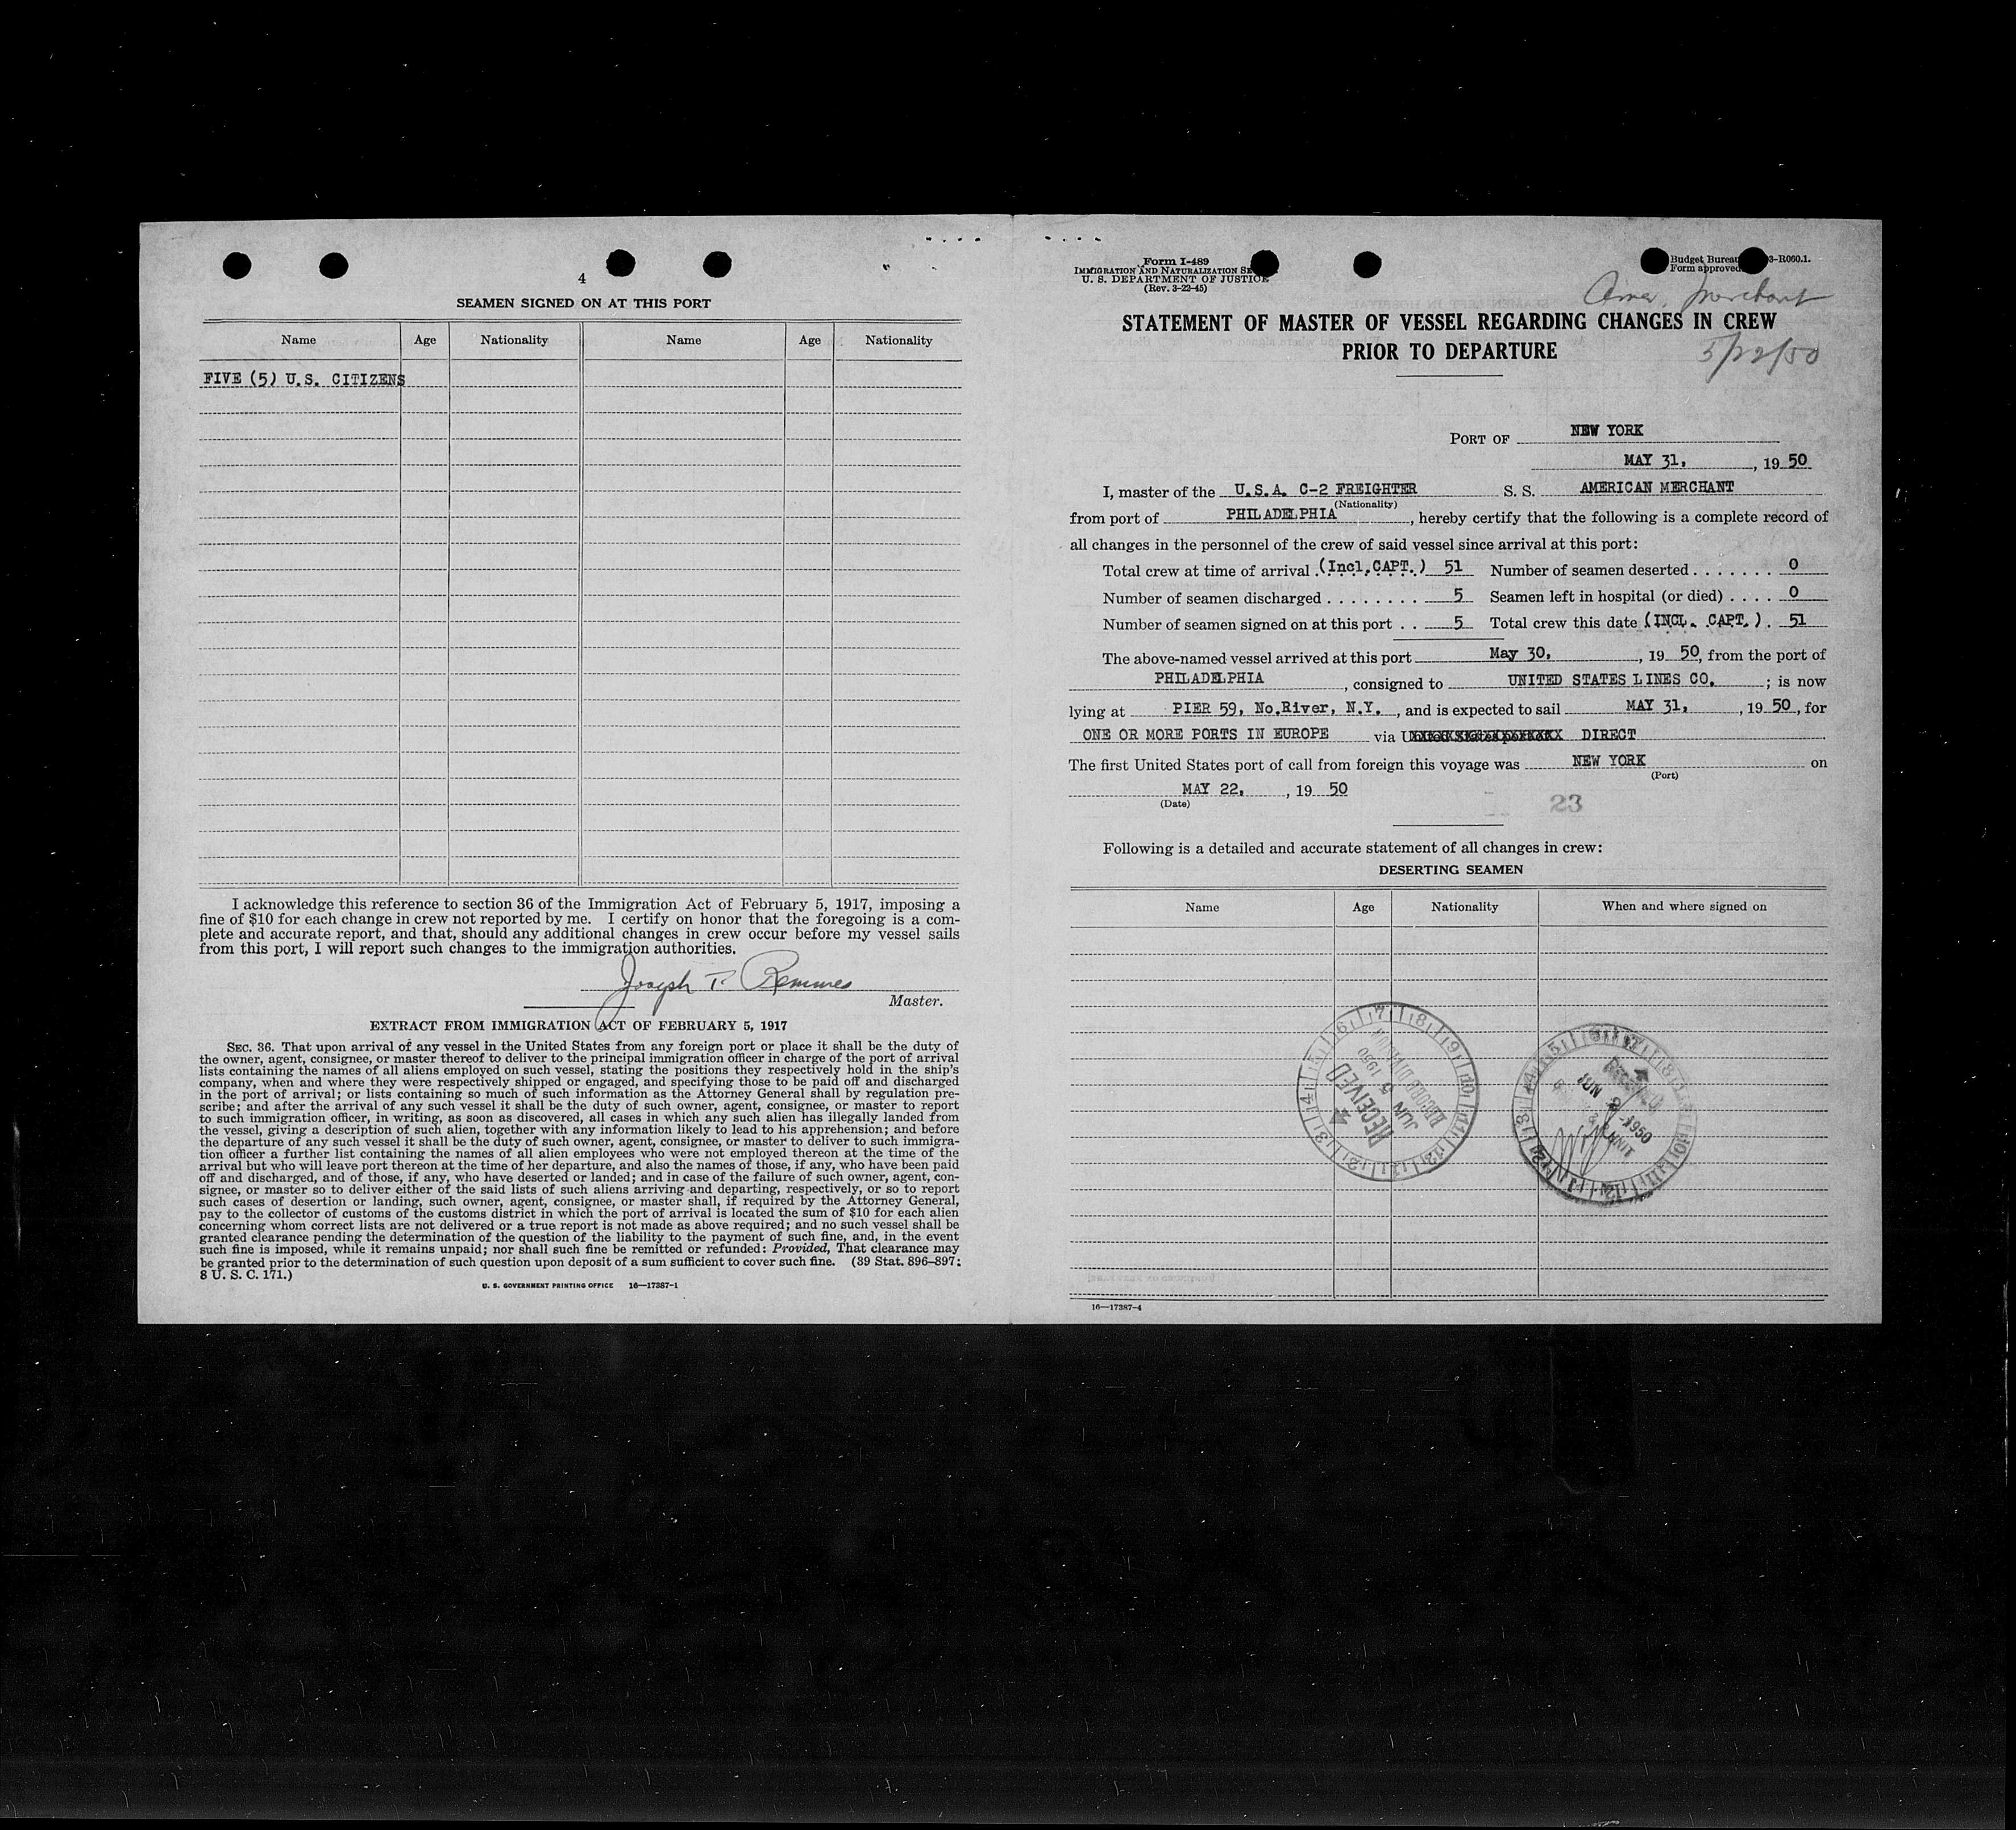 4
SEAMEN SIGNED ON AT THIS PORT
Name Age Nationality Name Age Nationality
FIVE (5) U.S. CITIZENS
I acknowledge this reference to section 36 of the Immigration Act of February 5, 1917, imposing a
fine of $10 for each change in crew not reported by me. I certify on honor that the foregoing is a com-
plete and accurate report, and that, should any additional changes in crew occur before my vessel sails
from this port, I will report such changes to the immigration authorities.
Joseph
Master.
EXTRACT FROM IMMIGRATION ACT OF FEBRUARY 5, 1917
SEC. 36. That upon arrival of any vessel in the United States from any foreign port or place it shall be the duty of
the owner, agent, consignee, or master thereof to deliver to the principal immigration officer in charge of the port of arrival
lists containing the names of all aliens employed on such vessel, stating the positions they respectively hold in the ship's
company, when and where they were respectively shipped or engaged, and specifying those to be paid off and discharged
in the port of arrival; or lists containing so much of such information as the Attorney General shall by regulation pre-
scribe; and after the arrival of any such vessel it shall be the duty of such owner, agent, consignee, or master to report
to such immigration officer, in writing, as soon as discovered, all cases in which any such alien has illegally landed from
the vessel, giving a description of such alien, together with any information likely to lead to his apprehension; and before
the departure of any such vessel it shall be the duty of such owner, agent, consignee, or master to deliver to such immigra-
tion officer a further list containing the names of all alien employees who were not employed thereon at the time of the
arrival but who will leave port thereon at the time of her departure, and also the names of those, if any, who have been paid
off and discharged, and of those, if any, who have deserted or landed; and in case of the failure of such owner, agent, con-
signee, or master so to deliver either of the said lists of such aliens arriving and departing, respectively, or so to report
such cases of desertion or landing, such owner, agent, consignee, or master shall, if required by the Attorney General,
pay to the collector of customs of the customs district in which the port of arrival is located the sum of $10 for each alien
concerning whom correct lists are not delivered or a true report is not made as above required; and no such vessel shall be
granted clearance pending the determination of the question of the liability to the payment of such fine, and, in the event
such fine is imposed, while it remains unpaid; nor shall such fine be remitted or refunded: Provided, That clearance may
be granted prior to the determination of such question upon deposit of a sum sufficient to cover such fine. (39 Stat. 896-897;
8 U. S. C. 171.)
U. S. GOVERNMENT PRINTING OFFICE 16—17387-1
Form I-489
IMMIGRATION AND NATURALIZATION SE
U. S. DEPARTMENT OF JUSTICE
(Rev. 3-22-45)
Budget Bureau 3-R060.1.
Form approved
Amer. Merchant
STATEMENT OF MASTER OF VESSEL REGARDING CHANGES IN CREW
PRIOR TO DEPARTURE
5/22/50
PORT OF NEW YORK
MAY 31, , 19 50
I, master of the U.S.A. C-2 FREIGHTER S. S. AMERICAN MERCHANT
(Nationality)
from port of PHILADELPHIA , hereby certify that the following is a complete record of
all changes in the personnel of the crew of said vessel since arrival at this port:
Total crew at time of arrival (Incl.CAPT.) 51 Number of seamen deserted . . . . . . . 0
Number of seamen discharged . . . . . . . . 5 Seamen left in hospital (or died) . . . . 0
Number of seamen signed on at this port . . 5 Total crew this date (INCL. CAPT.) . 51
The above-named vessel arrived at this port May 30, , 19 50, from the port of
PHILADELPHIA , consigned to UNITED STATES LINES CO. ; is now
lying at PIER 59, No.River, N.Y. , and is expected to sail MAY 31, , 19 50 , for
ONE OR MORE PORTS IN EUROPE via DIRECT
The first United States port of call from foreign this voyage was NEW YORK on
(Port)
MAY 22, , 19 50
(Date)
23
Following is a detailed and accurate statement of all changes in crew:
DESERTING SEAMEN
Name Age Nationality When and where signed on
RECEIVED
JUN 5 1950
RECORD DIVISION
JUN 2 1950
UNIT
16—17387-4